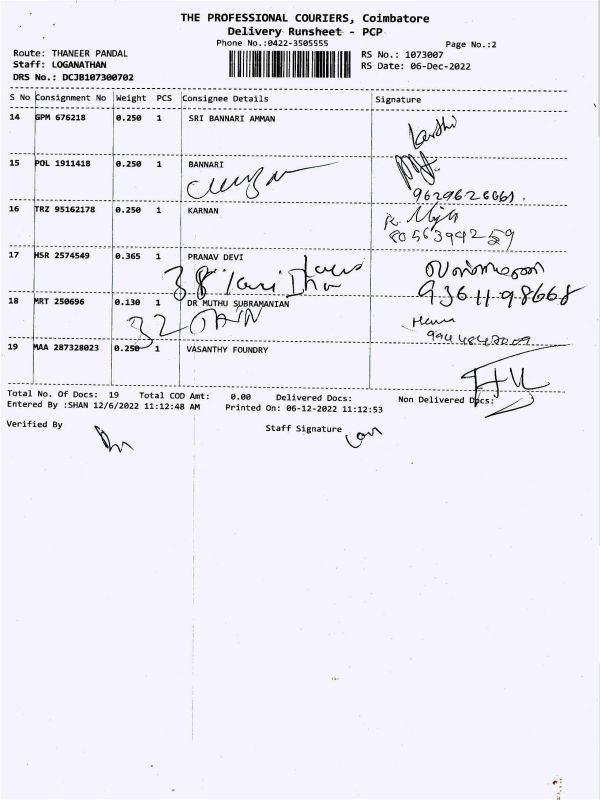 THE PROFESSIONAL COURIERS, Coimbatore
Delivery Runsheet - PCP
Phone No.:0422-3505555
Page No.:2
Route: THANEER PANDAL
RS No.: 1073007
Staff: LOGANATHAN
RS Date: 06-Dec-2022
DRS No.: DCJB107300702
S No Consignment No Weight PCS Consignee Details Signature
14 GPM 676218 0.250 1 SRI BANNARI AMMAN
15 POL 1911418 0.250 1 BANNARI
9629626661.
16 TRZ 95162178 0.250 1 KARNAN
8056394259
17 HSR 2574549 0.365 1 PRANAV DEVI
38
9361198668
18 MRT 250696 0.130 1 DR MUTHU SUBRAMANIAN
32 JAIN
19 MAA 287328023 0.250 1 VASANTHY FOUNDRY
Total No. Of Docs: 19 Total COD Amt: 0.00 Delivered Docs: Non Delivered Docs:
Entered By :SHAN 12/6/2022 11:12:48 AM Printed On: 06-12-2022 11:12:53
Verified By Staff Signature